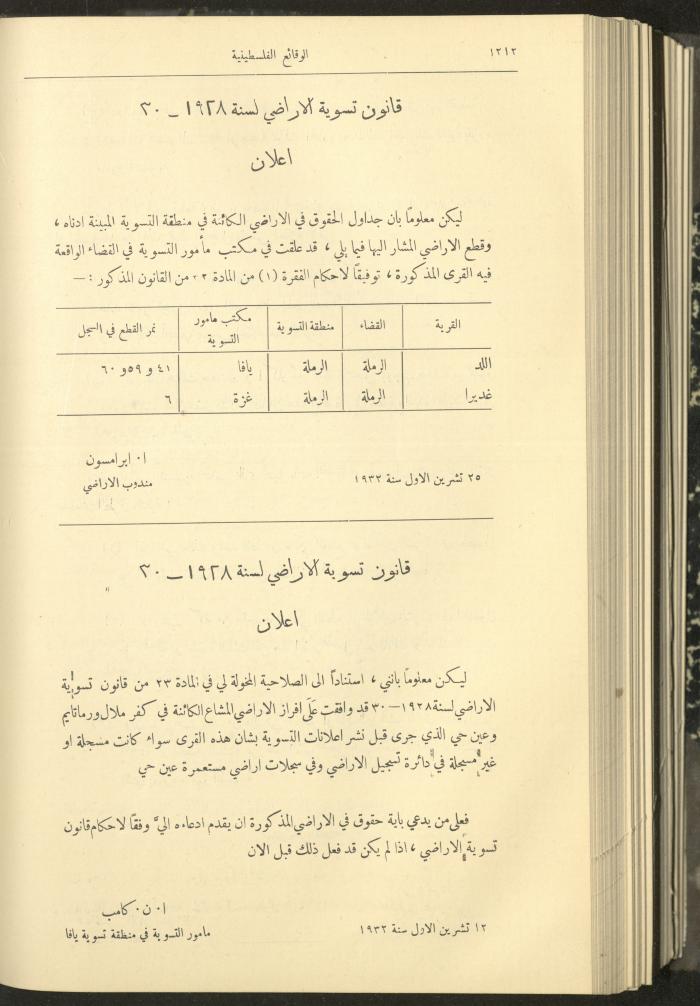 ١٢١٢ الوقائع الفلسطينية
قانون تسوية الاراضي لسنة ١٩٢٨ — ٣٠
اعلان
ليكن معلومًا بان جداول الحقوق في الاراضي الكائنة في منطقة التسوية المبينة ادناه ،
وقطع الاراضي المشار اليها فيما يلي ، قد علقت في مكتب مأمور التسوية في القضاء الواقعة
فيه القرى المذكورة ، توفيقًا لاحكام الفقرة (١) من المادة من القانون المذكور : —
القرية القضاء منطقة التسوية مكتب مامور التسوية نمر القطع في السجل
اللد الرملة الرملة يافا ٤١ و ٥٩ و ٦٠
غديرا الرملة الرملة غزة ٦
ا٠ ابرامسون
٢٥ تشرين الاول سنة ١٩٣٢ مندوب الاراضي
قانون تسوية الاراضي لسنة ١٩٢٨ — ٣٠
اعلان
ليكن معلومًا بانني ، استنادًا الى الصلاحية المخولة لي في المادة ٢٣ من قانون تسوية
الاراضي لسنة ١٩٢٨ — ٣٠ قد وافقت على افراز الاراضي المشاع الكائنة في كفر ملال ورماتايم
وعين حي الذي جرى قبل نشر اعلانات التسوية بشان هذه القرى سواء كانت مسجلة او
غير مسجلة في دائرة تسجيل الاراضي وفي سجلات اراضي مستعمرة عين حي
فعلى من يدعي باية حقوق في الاراضي المذكورة ان يقدم ادعاءه اليَّ وفقًا لاحكام قانون
تسوية الاراضي ، اذا لم يكن قد فعل ذلك قبل الان
ا٠ ن٠ كامب
١٢ تشرين الاول سنة ١٩٣٢ مامور التسوية في منطقة تسوية يافا